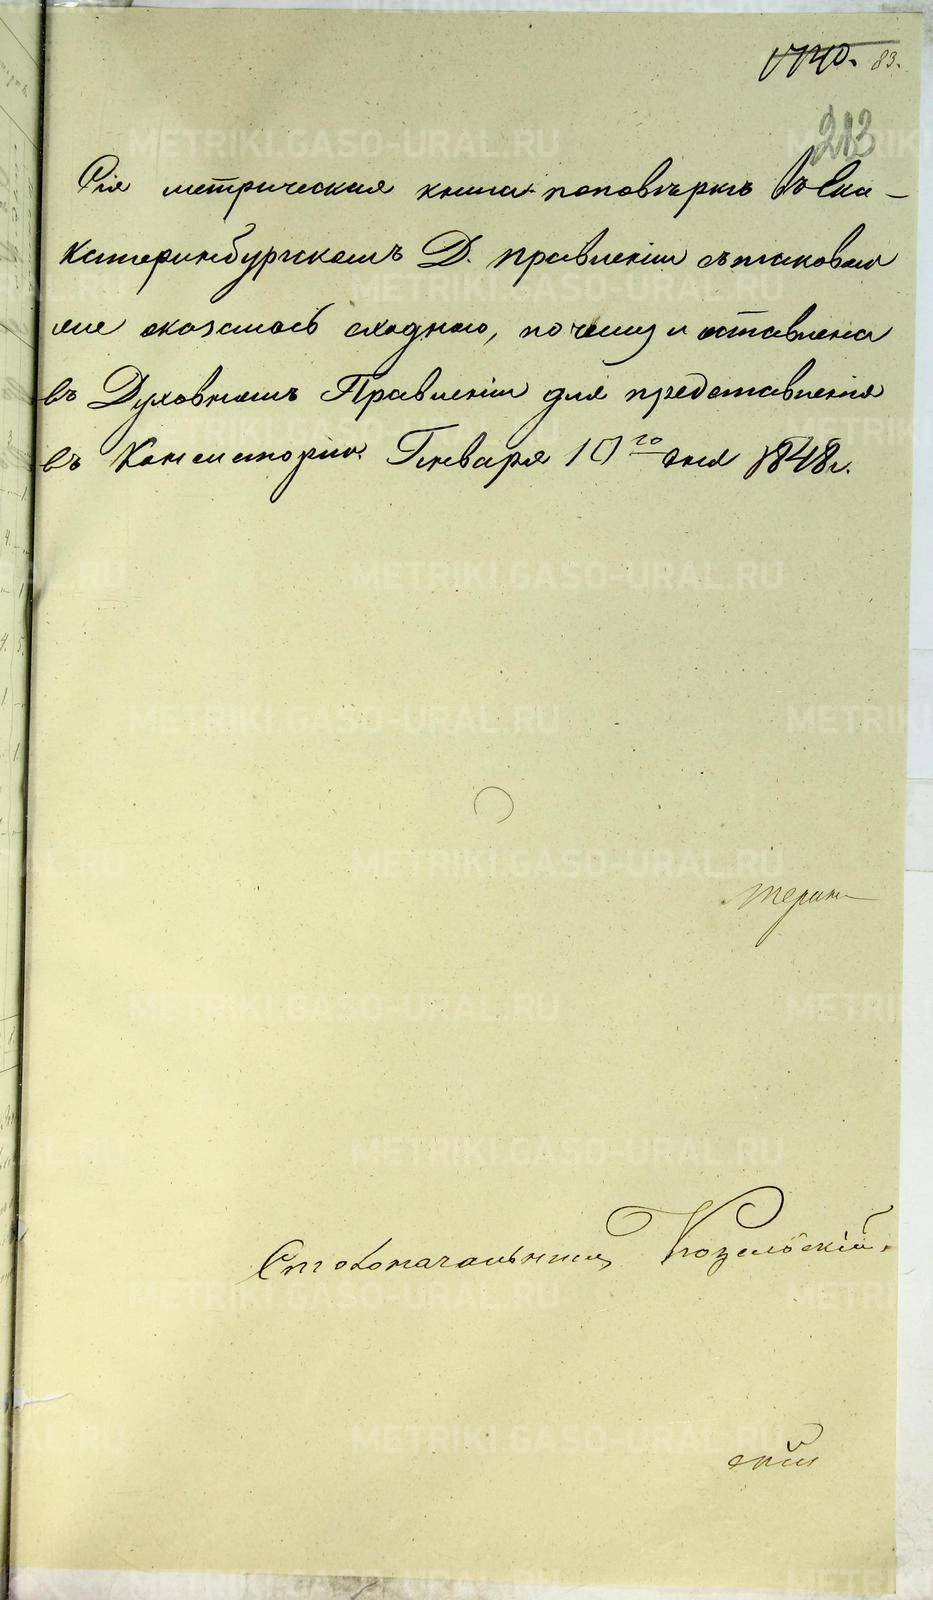 1740. 83.
213
Сія метрическая книга поповѣркѣ Въ Ека-
катеринбургскомъ Д. Правленіи съ таковою
же оказалась сходною, почему и оставлена
въ Духовномъ Правленіи для представленія
въ Консисторію. Генваря 10го дня 1848 г.
терин
Столоначальникъ
скій
METRIKI.GASO-URAL.RU